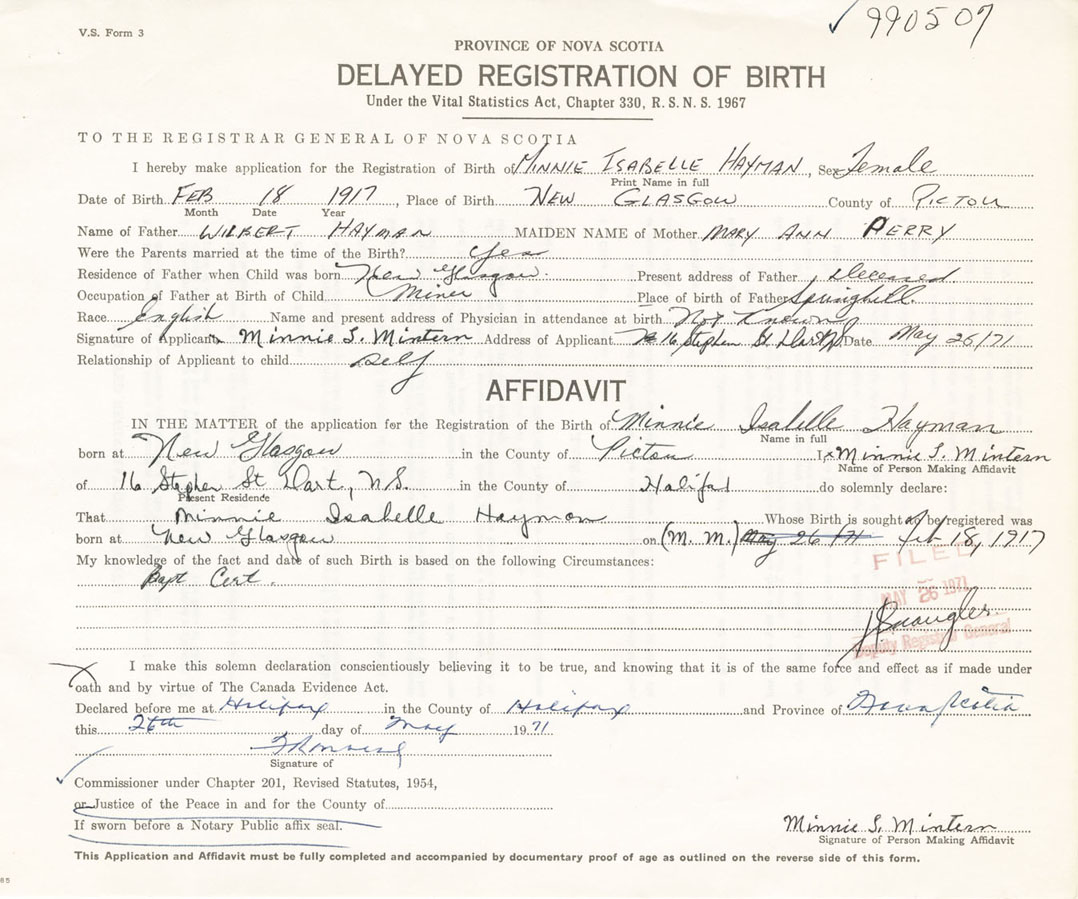 V.S. Form 3
990507
PROVINCE OF NOVA SCOTIA
DELAYED REGISTRATION OF BIRTH
Under the Vital Statistics Act, Chapter 330, R. S. N. S. 1967
TO THE REGISTRAR GENERAL OF NOVA SCOTIA
I hereby make application for the Registration of Birth of MINNIE ISABELLE HAYMAN, Sex Female
Print Name in full
Date of Birth FEB 18 1917, Place of Birth NEW GLASGOW County of PICTOU
Month Date Year
Name of Father WILBERT HAYMAN MAIDEN NAME of Mother MARY ANN PERRY
Were the Parents married at the time of the Birth? Yes
Residence of Father when Child was born New Glasgow. Present address of Father Deceased
Occupation of Father at Birth of Child Miner Place of birth of Father Springhill.
Race English Name and present address of Physician in attendance at birth Not Known
Signature of Applicant Minnie I. Mintern Address of Applicant 16 Stephen St Date May 26/71
Relationship of Applicant to child Self
AFFIDAVIT
IN THE MATTER of the application for the Registration of the Birth of Minnie Isabelle Hayman
Name in full
born at New Glasgow in the County of Pictou I, x Minnie I. Mintern
Name of Person Making Affidavit
of 16 Stephen St Dart, N.S. in the County of Halifax do solemnly declare:
Present Residence
That Minnie Isabelle Hayman Whose Birth is sought to be registered was
born at New Glasgow on (M. M.) May 26/71 Feb 18, 1917
My knowledge of the fact and date of such Birth is based on the following Circumstances:
FILED
Bapt Cert.
MAY 26 1971
Deputy Registrar General
I make this solemn declaration conscientiously believing it to be true, and knowing that it is of the same force and effect as if made under
oath and by virtue of The Canada Evidence Act.
Declared before me at Halifax in the County of Halifax and Province of Nova Scotia
this 26th day of May 1971
Signature of
Commissioner under Chapter 201, Revised Statutes, 1954,
or Justice of the Peace in and for the County of
If sworn before a Notary Public affix seal.
Minnie I. Mintern
Signature of Person Making Affidavit
This Application and Affidavit must be fully completed and accompanied by documentary proof of age as outlined on the reverse side of this form.
65